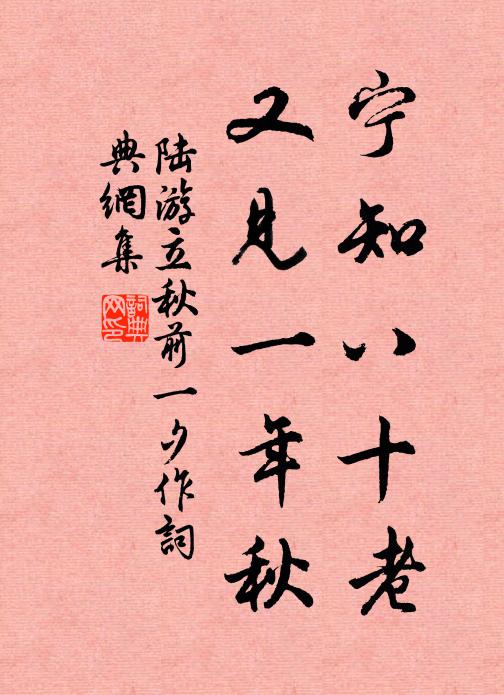 宁知八十老
又见一年秋
陆游立秋前一夕作詞
典網集
詞典
网印